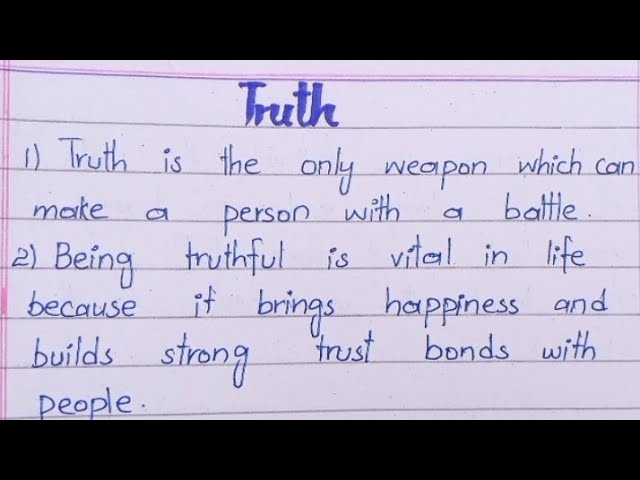 Truth
1) Truth is the only weapon which can
make a person with a battle.
2) Being truthful is vital in life
because it brings happiness and
builds strong trust bonds with
people.